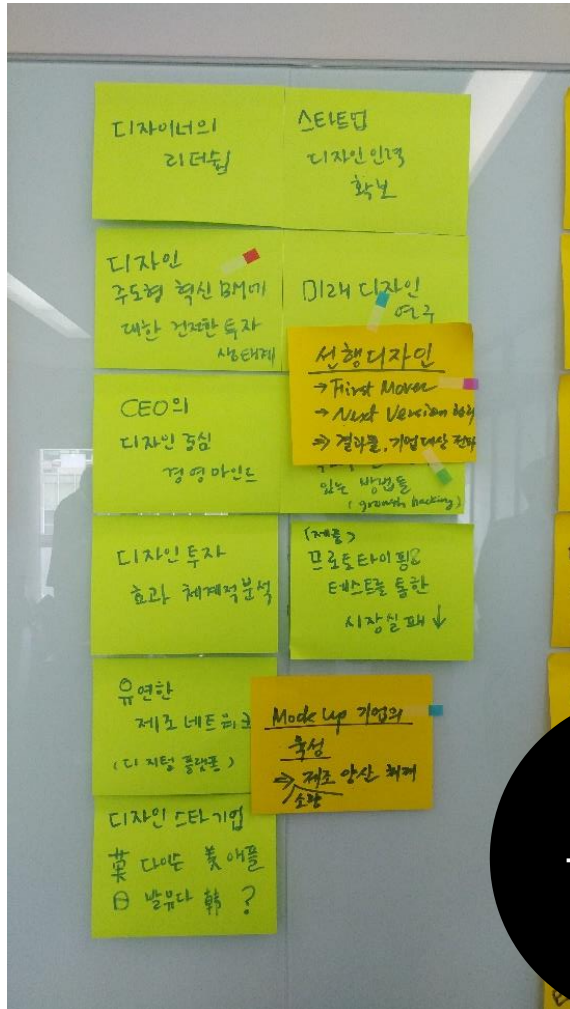 디자이너의
리더쉽
스타트업
디자인 인력
확보
디자인
주도형 혁신 BM에
대한 건전한 투자
생태계
미래 디자인
연구
선행디자인
→ First Mover
→ Next Version
→ 결과물, 기업대상 전파
CEO의
디자인 중심
경영마인드
있는 방법들
(growth hacking)
디자인 투자
효과 체계적 분석
(제품)
프로토타이핑
테스트를 통한
시장실패 ↓
유연한
제조 네트워크
(디지털 플랫폼)
Mock up 기업의
육성
→ 제조 양산
소량
디자인 스타기업
英 다이슨 美 애플
日 발뮤다 韓 ?